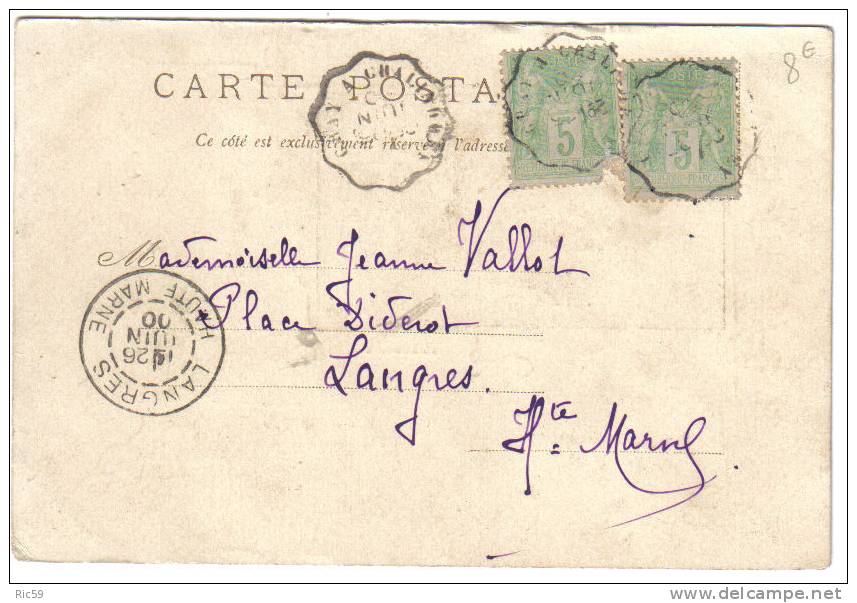 8€
CARTE POSTA
Ce côté est exclusivement réservé à l'adresse
GRAY A CHALINDREY
JUIN
5
5
Mademoiselle Jeanne Vallot
Place Diderot
Langres.
Hte Marne
LANGRES HUTE MARNE
26
JUIN
00
Ric59
www.delcampe.net